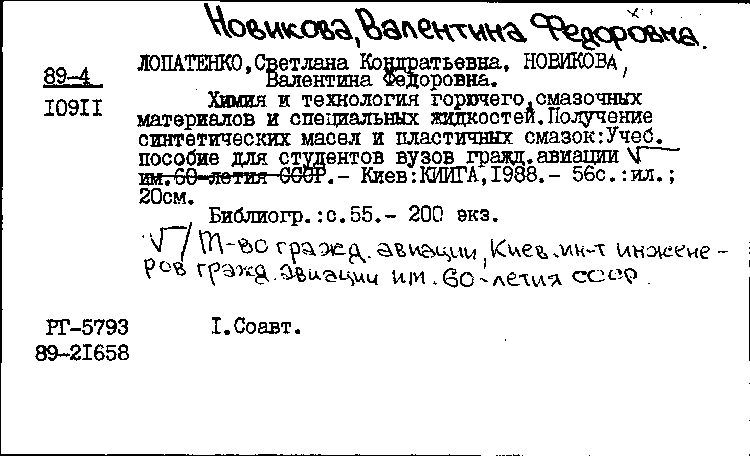 Новикова, Валентина Федоровна.
ЛОПАТЕНКО, Светлана Кондратьевна, НОВИКОВА,
89-4
Валентина Федоровна.
I09II
Химия и технология горючего, смазочных
материалов и специальных жидкостей. Получение
синтетических масел и пластичных смазок: Учеб.
пособие для студентов вузов гражд. авиации √
им. 60-летия СССР. - Киев: КИИГА, 1988. - 56с. : ил. ;
20см.
Библиогр. : с. 55. - 200 экз.
√/М-во гражд. авиации, Киев. ин-т инжене-
ров гражд. авиации им. 60-летия СССР.
РГ-5793
I. Соавт.
89-2I658